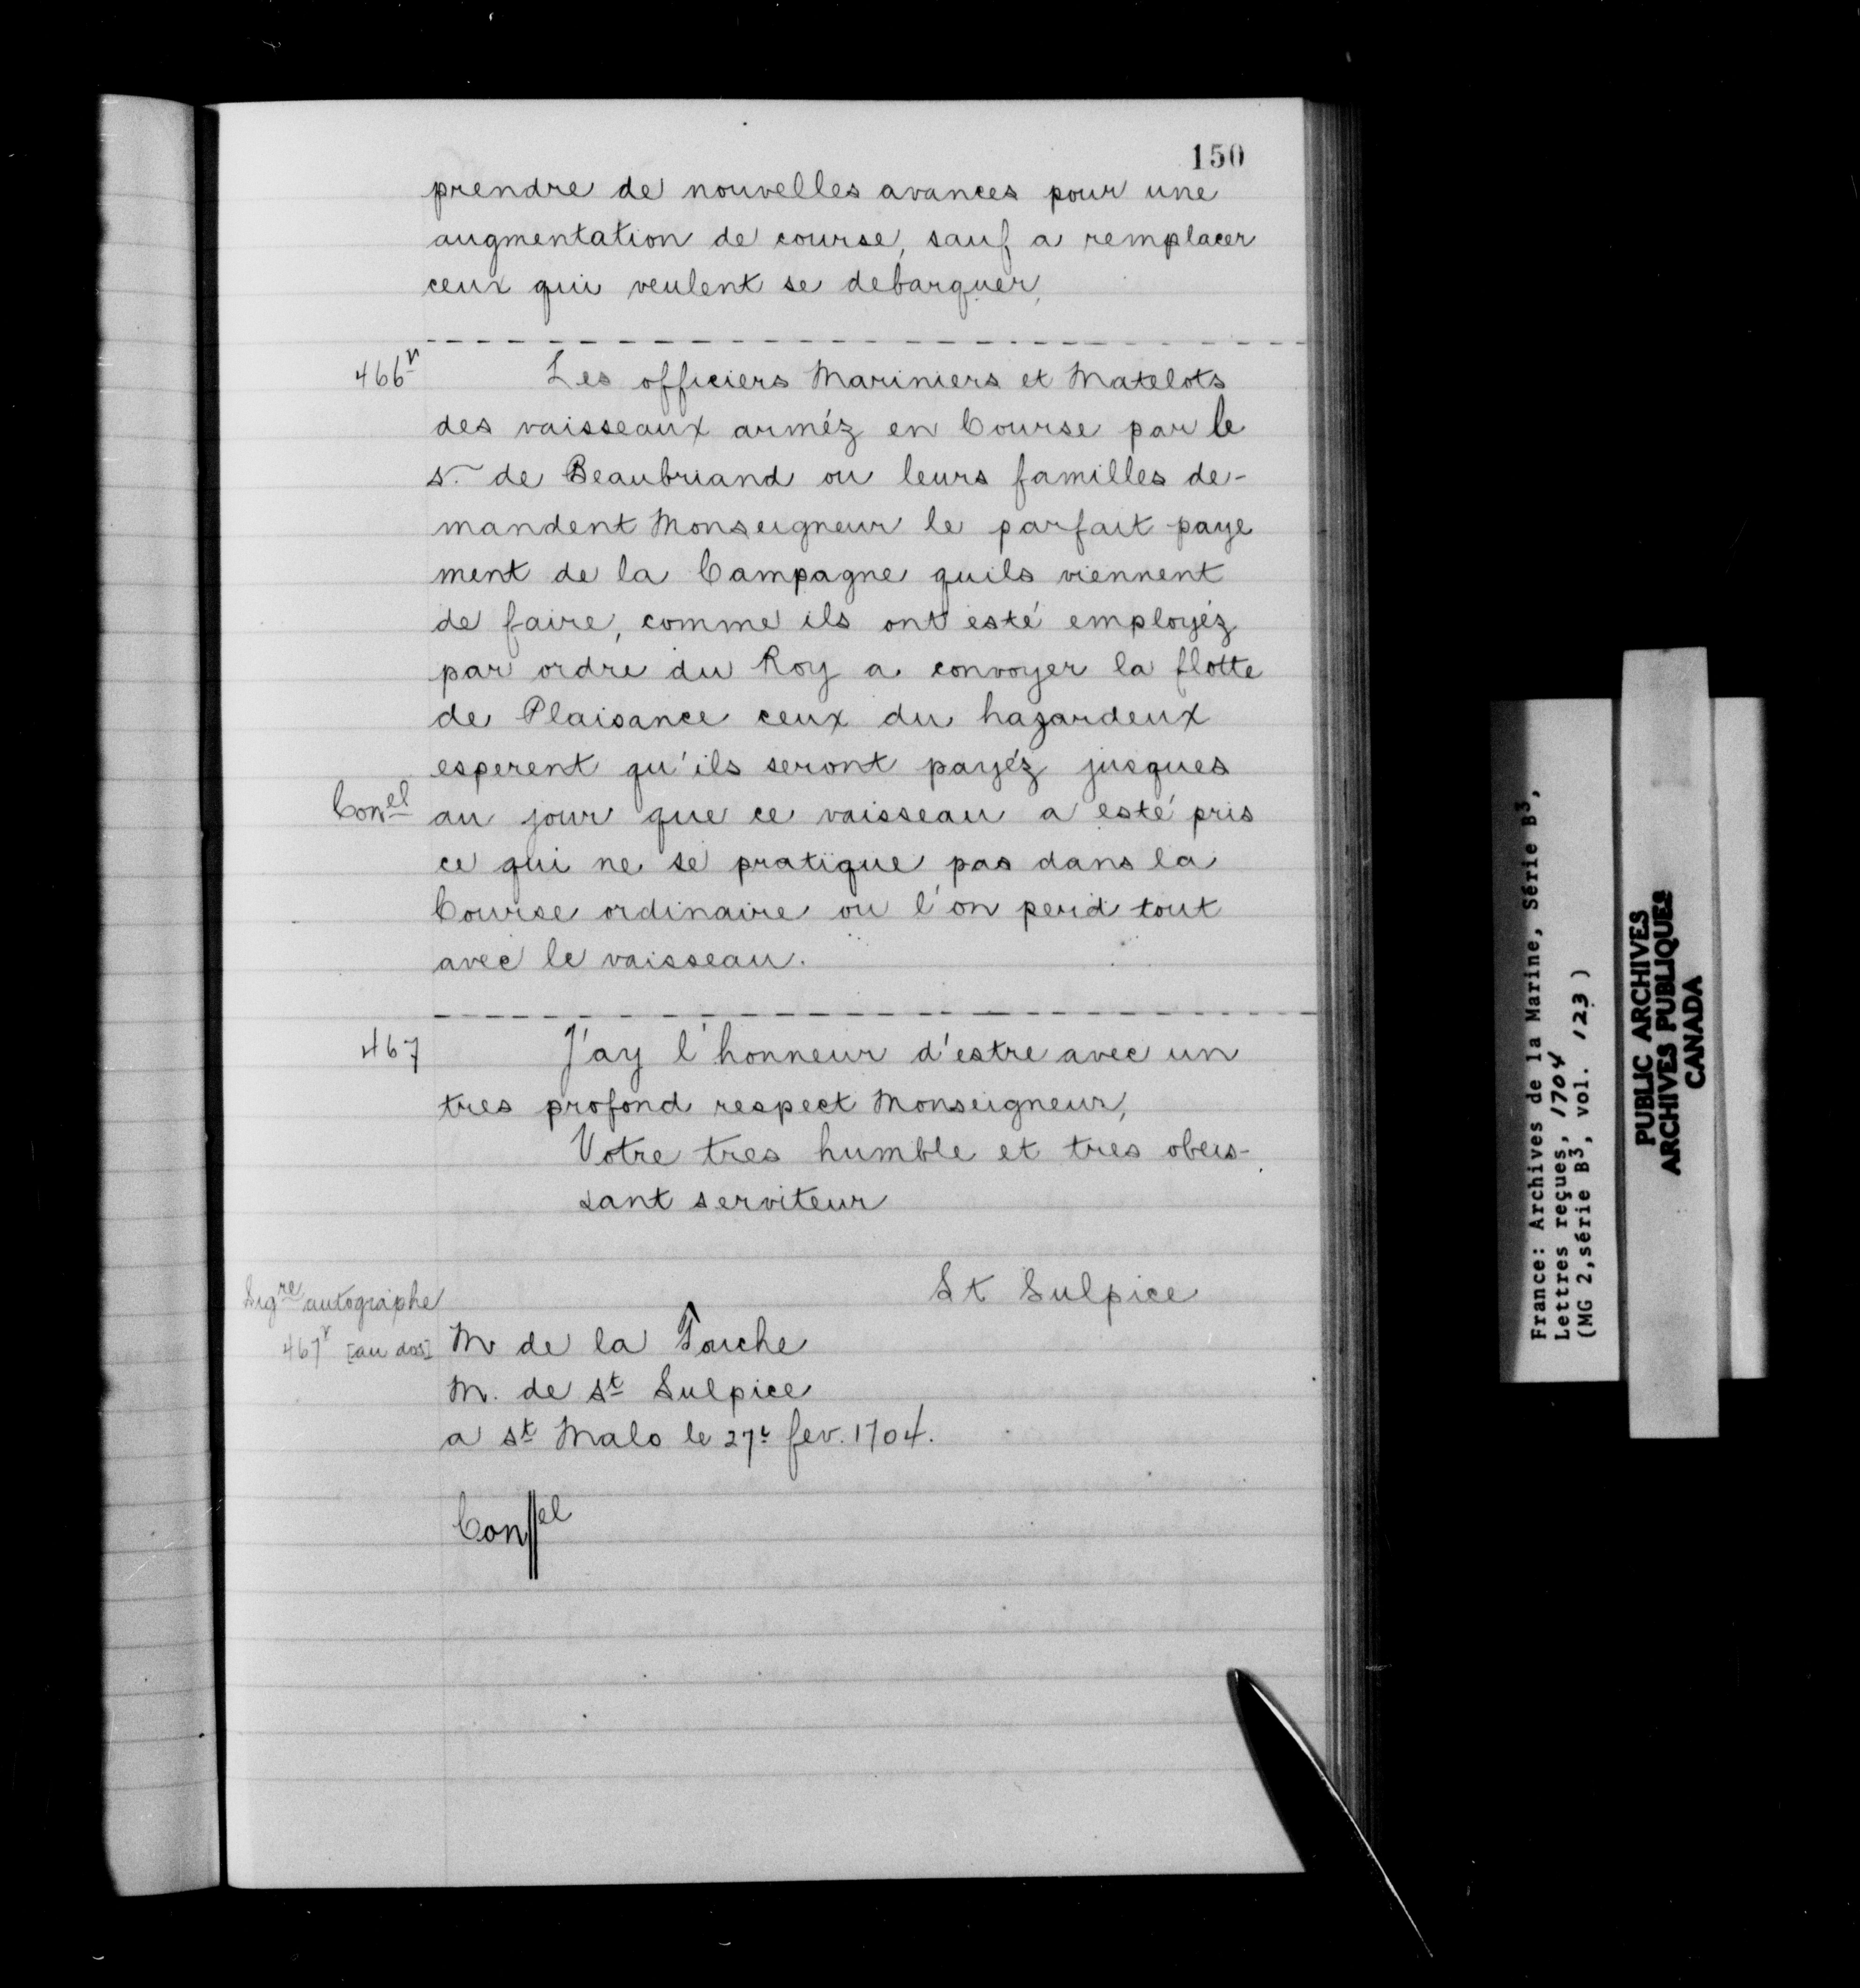 150
prendre de nouvelles avances pour une
augmentation de course, sauf a remplacer
ceux qui veulent se debarquer,
466v
Les officiers Mariniers et Matelots
des vaisseaux arméz en Course par le
sr. de Beaubriand ou leurs familles de-
mandent Monseigneur le parfait paye
ment de la Campagne quils viennent
de faire, comme ils ont esté employéz
par ordre du Roy a convoyer la flotte
de Plaisance ceux du hazardeux
esperent qu'ils seront payéz jusques
Conel
au jour que ce vaisseau a esté pris
ce qui ne se pratique pas dans la
Course ordinaire ou l'on perd tout
avec le vaisseau.
467
J'ay l'honneur d'estre avec un
tres profond respect Monseigneur,
Votre tres humble et tres obeis-
sant serviteur
St Sulpice
Sigre autographe
467v [au dos]
M de la Touche
M. de st Sulpice
a st Malo le 27e fev. 1704.
Conel
France: Archives de la Marine, Série B3,
Lettres reçues, 1704
(MG 2, série B3, vol. 123)
PUBLIC ARCHIVES
ARCHIVES PUBLIQUES
CANADA